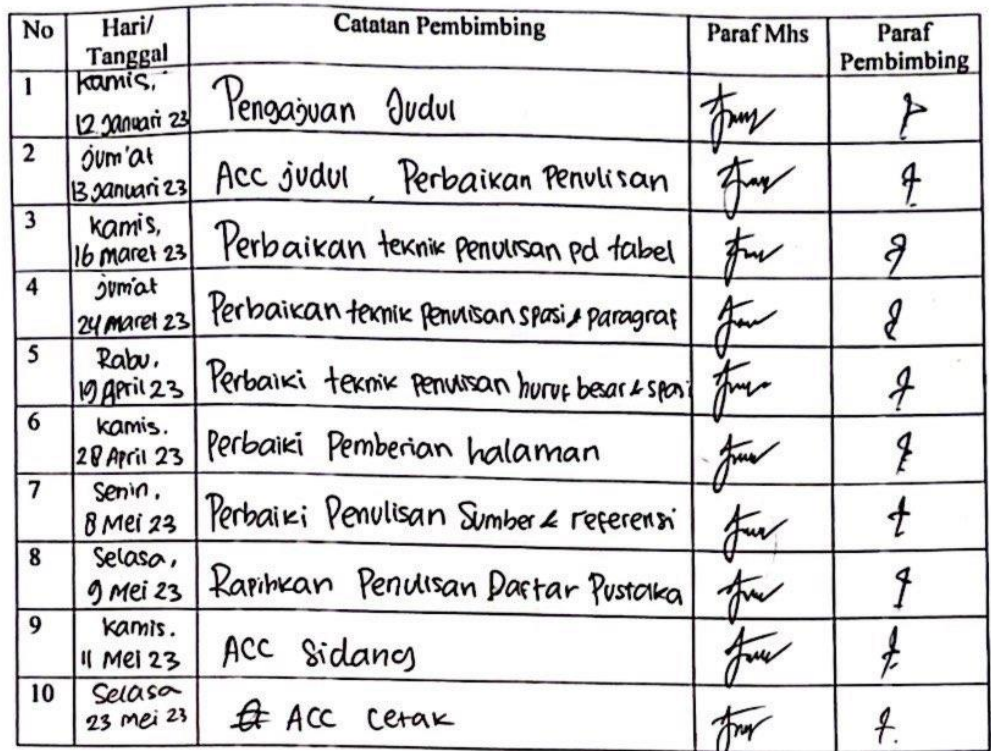 No Hari/ Tanggal Catatan Pembimbing Paraf Mhs Paraf Pembimbing
1 Kamis, 12 Januari 23 Pengajuan Judul
2 Jum'at 13 Januari 23 ACC judul, Perbaikan Penulisan
3 Kamis, 16 Maret 23 Perbaikan teknik penulisan pd tabel
4 Jum'at 24 Maret 23 Perbaikan teknik penulisan spasi & paragraf
5 Rabu, 19 April 23 Perbaiki teknik penulisan huruf besar & spasi
6 Kamis. 28 April 23 Perbaiki Pemberian halaman
7 Senin, 8 Mei 23 Perbaiki Penulisan Sumber & referensi
8 Selasa, 9 Mei 23 Rapihkan Penulisan Daftar Pustaka
9 Kamis. 11 Mei 23 ACC Sidang
10 Selasa 23 Mei 23 ACC Cetak